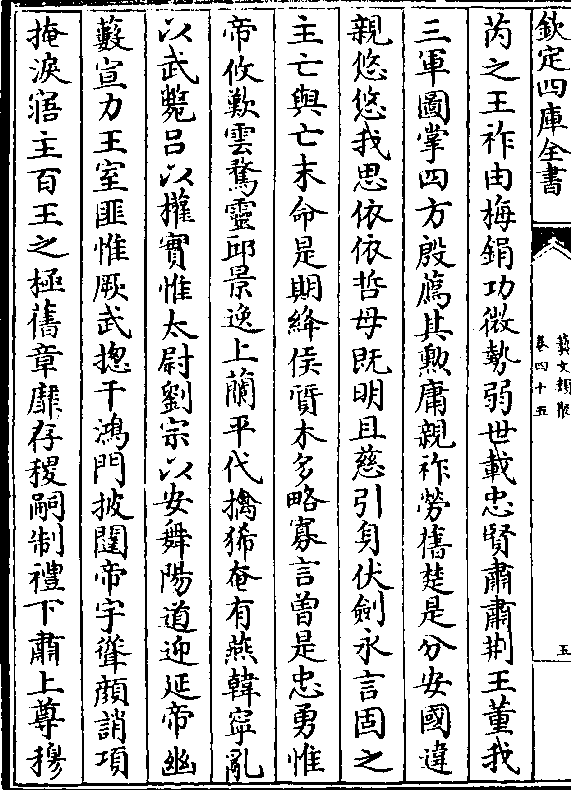 欽定四庫全書
藝文類聚
卷四十五
五
芮之王祚由梅鋗功微勢弱世載忠賢肅肅荆王董我
三軍圖掌四方殷薦其勲庸親祚勞舊楚是分安國違
親悠悠我思依依哲母既明且慈引身伏劍永言固之
主亡與亡末命是期絳侯質木多略寡言曽是忠勇惟
帝攸歎雲騖靈邱景逸上蘭平代擒狶奄有燕韓寧亂
以武斃吕以權實惟太尉劉宗以安舞陽道迎延帝幽
藪宣力王室匪惟厥武揔干鴻門披闥帝宇聳顔誚項
掩淚寤主百王之極舊章靡存稷嗣制禮下肅上尊穆